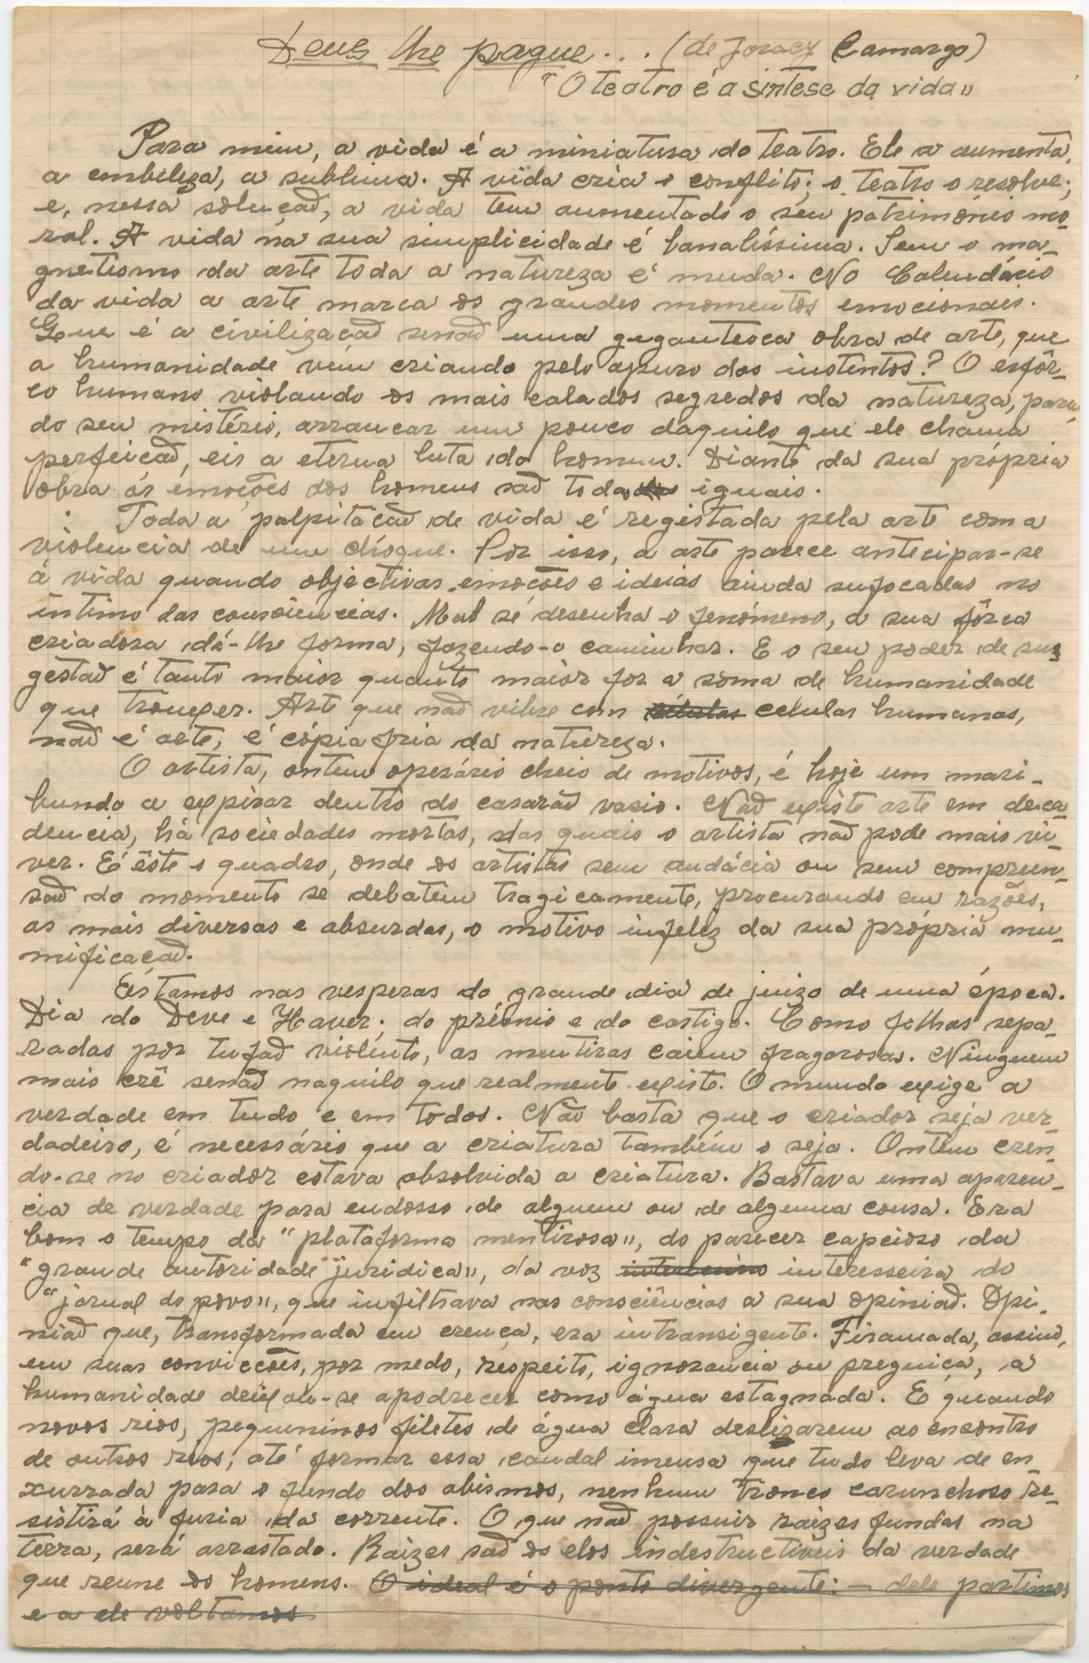 Deus lhe pague... (de Joracy Camargo)
"O teatro é a sintese da vida"
Para mim, a vida é a miniatura do teatro. Ele a aumenta,
a embeleza, a sublima. A vida cria o conflito; o teatro o resolve;
e, nessa solução, a vida tem aumentado o seu património mo-
ral. A vida na sua simplicidade é banalíssima. Sem o ma-
gnetismo da arte toda a natureza é muda. No Calendário
da vida a arte marca os grandes momentos emocionais.
Que é a civilização senão uma gigantesca obra de arte, que
a humanidade vem criando pelo apuro dos instintos? O esfôr-
co humano violando os mais calados segredos da natureza, para
do seu mistério, arrancar um pouco daquilo que ele chama
perfeição, eis a eterna luta do homem. Diante da sua própria
obra as emoções dos homens são todas iguais.
Toda a palpitação de vida é registada pela arte com a
violencia de um choque. Por isso, a arte parece antecipar-se
á vida quando objectivas emoções e ideias ainda sufocadas no
íntimo das consciencias. Mal se desenha o fenómeno, a sua fôrca
criadora dá-lhe forma, fazendo-o caminhar. E o seu poder de sug
gestão é tanto maior quanto maior for a soma de humanidade
que trouxer. Arte que não vibre com celulas humanas,
não é arte, é cópia fria da natureza.
O artista, ontem operário cheio de motivos, é hoje um mori-
bundo a expirar dentro do casarão vasio. Não existe arte em deca-
dencia, há sociedades mortas, das quais o artista não pode mais vi-
ver. É êste o quadro, onde os artistas sem audácia ou sem compreen-
são do momento se debatem tragicamente, procurando em razões,
as mais diversas e absurdas, o motivo infeliz da sua própria mu-
mificação.
Estamos nas vesperas do grande dia de juizo de uma época.
Dia do Deve e Haver; do prémio e do castigo. Como folhas sepa-
radas por tufão violento, as mentiras caiem fragorosas. Ninguem
mais crê senão naquilo que realmente existe. O mundo exige a
verdade em tudo e em todos. Não basta que o criador seja ver-
dadeiro, é necessário que a criatura também o seja. Ontem cren-
do-se no criador estava absolvida a criatura. Bastava uma aparen-
cia de verdade para endosso de alguem ou de alguma cousa. Era
bom o tempo da "plataforma mentirosa", do parecer capcioso da
"grande autoridade juridica", da voz interesseira do
"jornal do povo", que infiltrava nas consciências a sua opinião. Opi-
nião que, transformada em crença, era intransigente. Firamada, assim,
em suas convicções, por medo, respeito, ignorancia ou preguiça, a
humanidade deixou-se apodrecer como água estagnada. E quando
novos rios, pequeninos filetes de água clara deslizarem ao encontro
de outros rios, até formar essa caudal imensa que tudo leva de en-
xurrada para o fundo dos abismos, nenhum tronco carunchoso re-
sistirá à furia da corrente. O que não possuir raizes fundas na
terra, será arrastado. Raizes são os elos indestructiveis da verdade
que reune os homens. O ideal é o ponto divergente: - dele partimos
e a ele voltamos